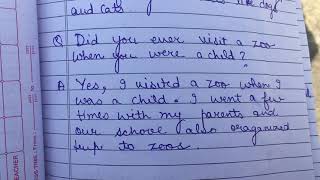 and cats like dogs
Q Did you ever visit a zoo
when you were a child?
A Yes, I visited a zoo when I
was a child. I went a few
times with my parents and
our school also oraganized
trip to zoos.
TEACHER